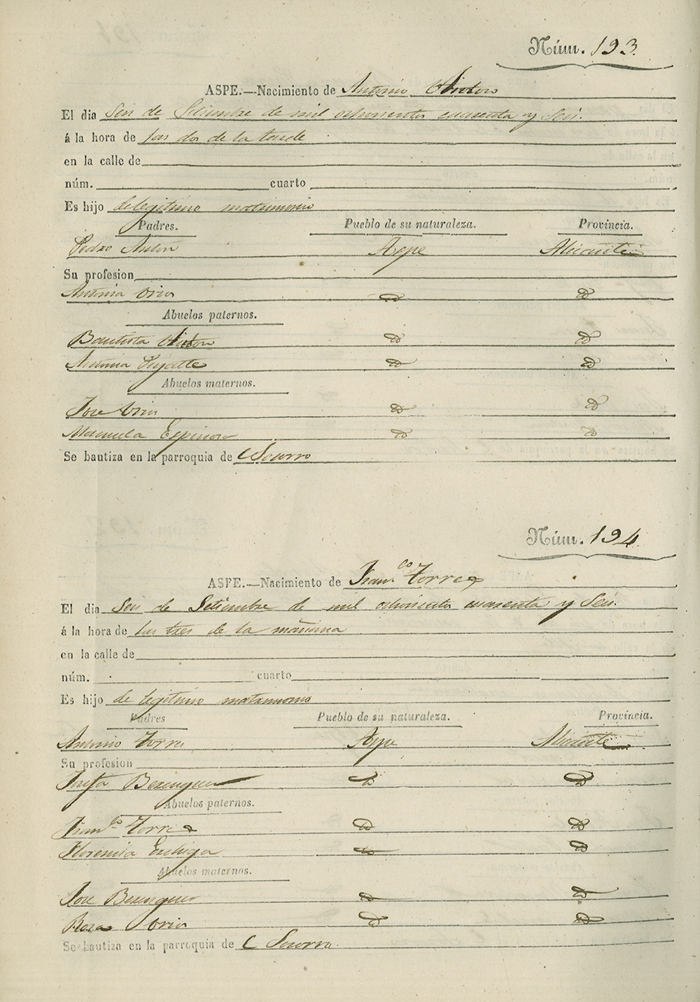 Núm. 193.
ASPE.—Nacimiento de Antonio
El dia Seis de Setiembre de mil ochocientos cuarenta y Seis.
á la hora de las dos de la tarde
en la calle de
núm. cuarto
Es hijo de legitimo matrimonio
Padres. Pueblo de su naturaleza. Provincia.
Pedro Aspe Alicante
Su profesion
Antonia d d
Abuelos paternos.
Bautista d d
Antonia d d
Abuelos maternos.
Jose d d
Manuela Espinosa d d
Se bautiza en la parroquia de Socorro
Núm. 194
ASPE.—Nacimiento de Franco Torres
El dia Seis de Setiembre de mil ochocientos cuarenta y Seis.
á la hora de las tres de la mañana
en la calle de
núm. cuarto
Es hijo de legitimo matrimonio
Padres Pueblo de su naturaleza. Provincia.
Antonio Torres Aspe Alicante
Su profesion
Josefa Berenguer d d
Abuelos paternos.
Franco Torres d d
Florencia d d
Abuelos maternos.
Jose Berenguer d d
Rosa d d
Se bautiza en la parroquia de Socorro